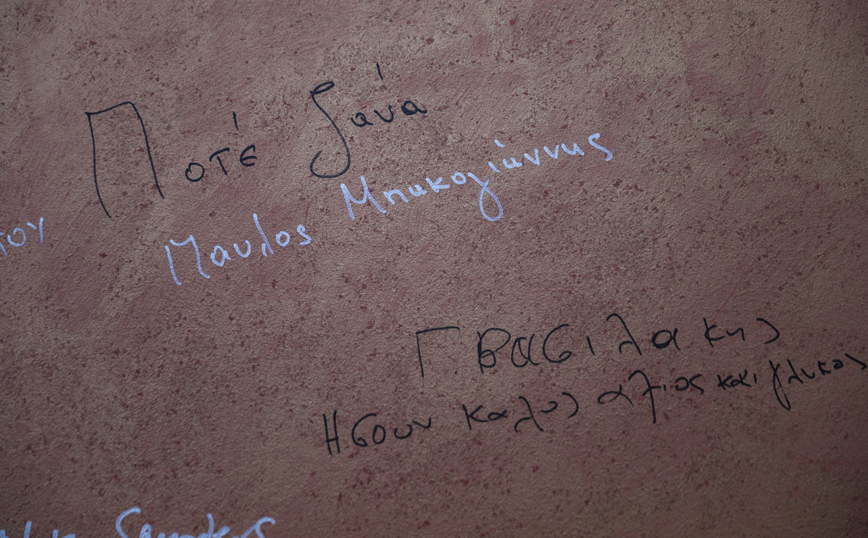 Ποτέ ξανά
Παυλος Μπακογιάννης
του
Γ. ΒΑσιλακης
Ησουν καλος αξιος και γλυκος